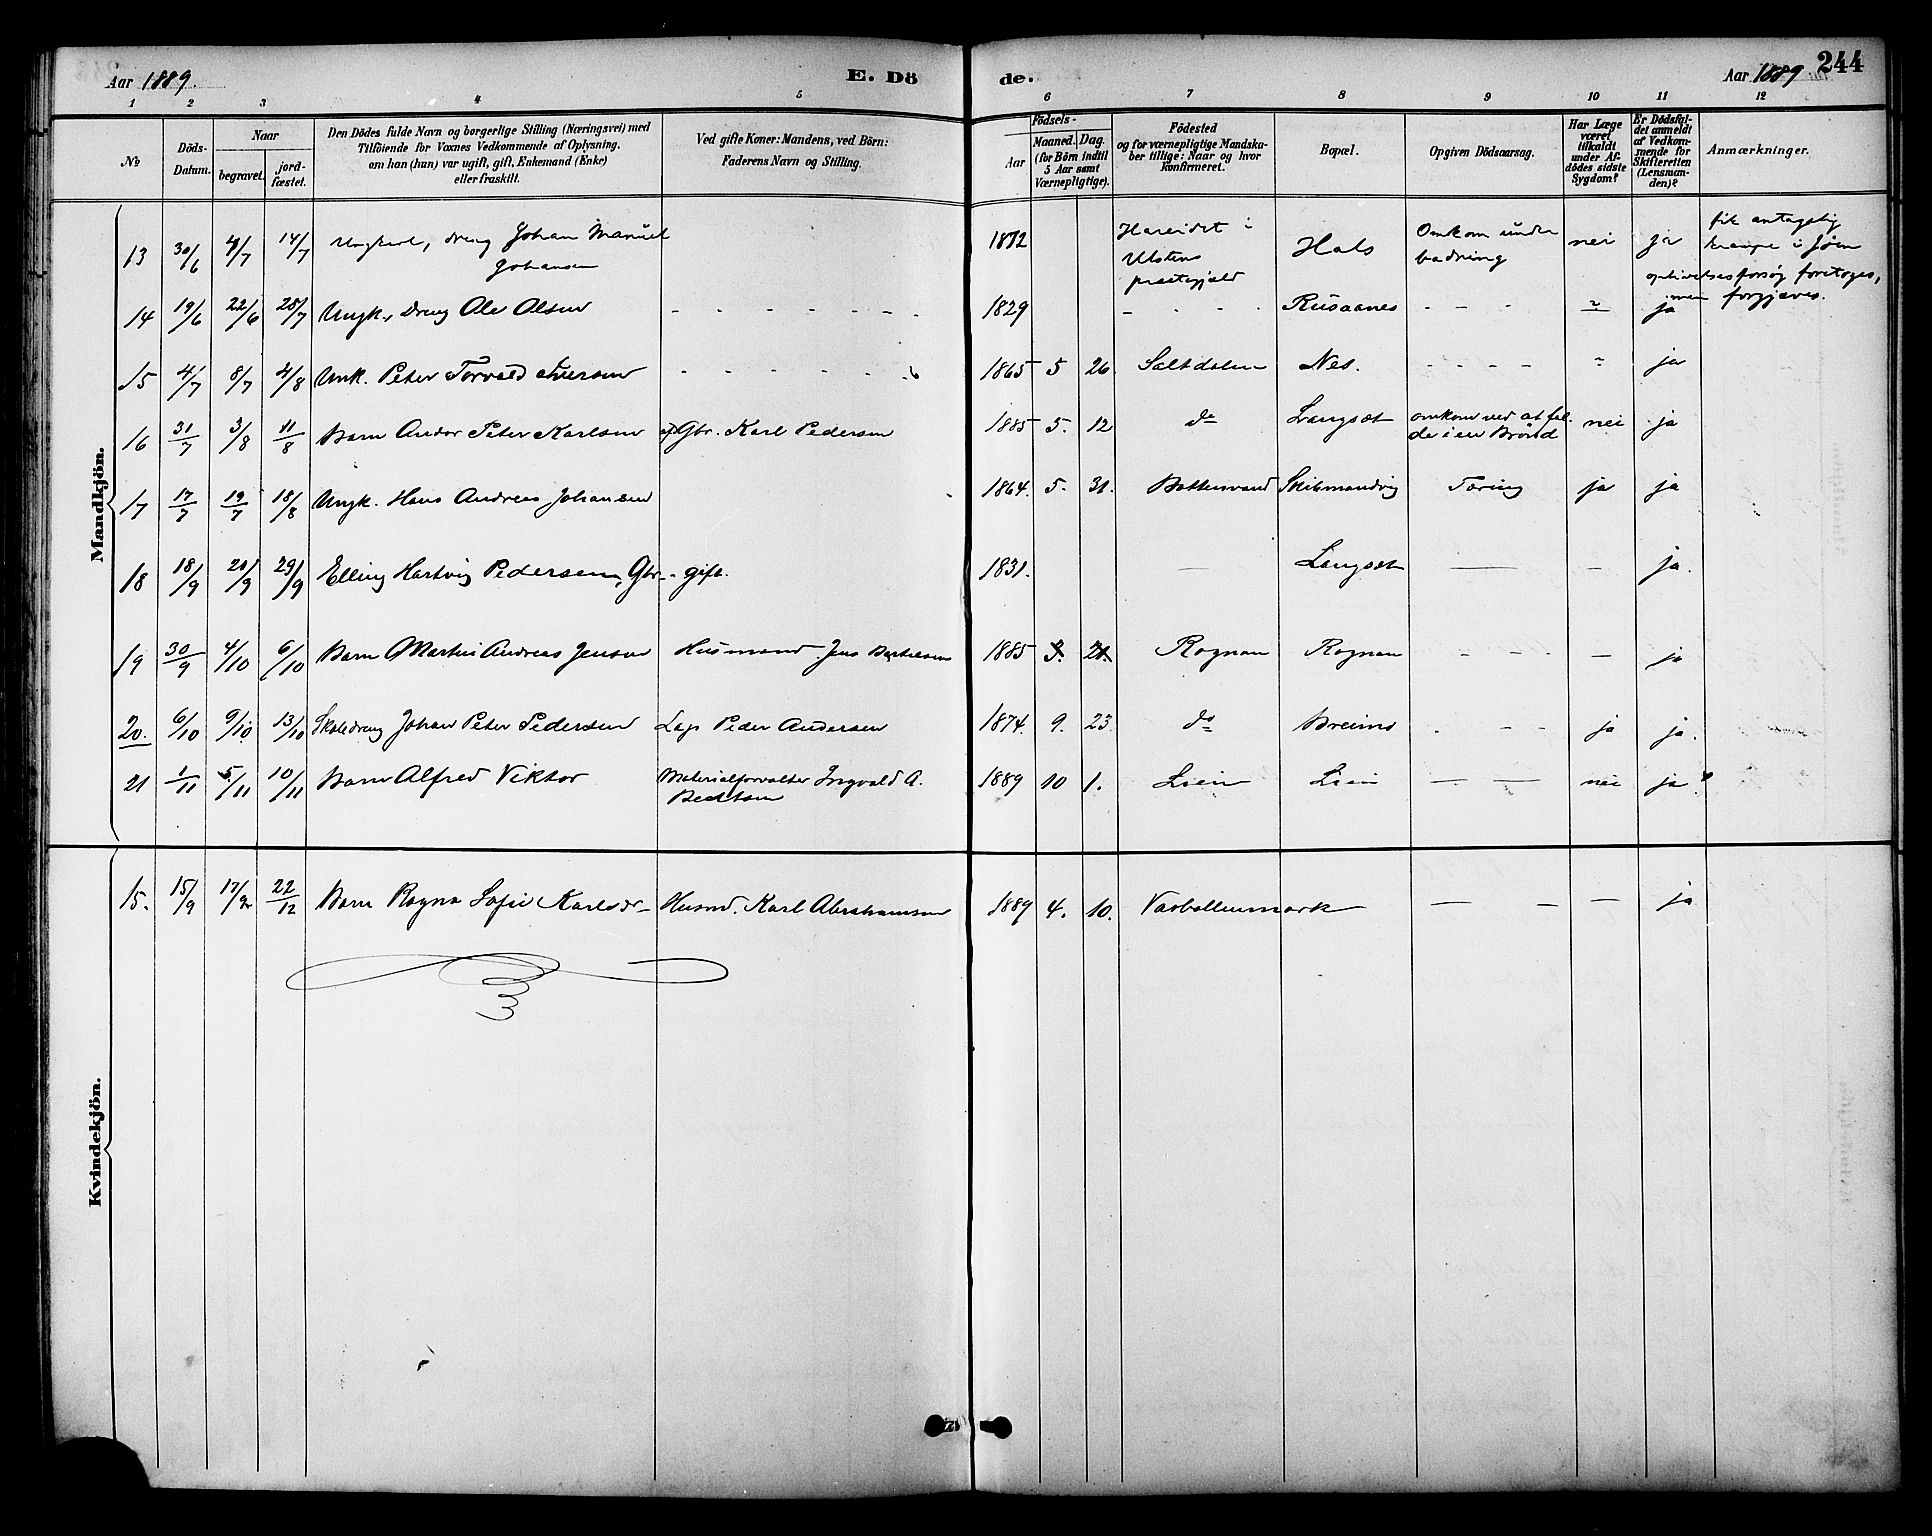 Aar 1889. E. Dö
de. Aar 1889 244
1 2 3 4 5
6 7 8 9 10 11 12
№ Döds-Datum. Naar begravet. jord-fæstet.
Den Dödes fulde Navn og borgerlige Stilling (Næringsvei) med
Tilföiende for Voxnes Vedkommende af Oplysning,
om han (hun) var ugift, gift, Enkemand (Enke)
eller fraskilt.
Ved gifte Koner: Mandens, ved Börn:
Faderens Navn og Stilling.
Födsels-
Aar Maaned. Dag.
(for Börn indtil
5 Aar samt
Værnepligtige).
Födested
og for værnepligtige Mandska-
ber tillige: Naar og hvor
konfirmeret.
Bopæl.
Opgiven Dödsaarsag.
Har Læge
været
tilkaldt
under Af-
dödes sidste
Sygdom?
Er Dödsfal-
det anmeldt
af Vedkom-
mende for
Skifteretten
(Lensman-
den)?
Anmærkninger.
Mandkjön.
13 30/6 4/7 14/7 Ungkarl, dreng Johan Manuel
Johansen
1872 Hareidet i
Ulstens
præstegjæld
Hals
Omkom under
badning
nei ja
fik antagelig
krampe i sjøen
oplivelsesforsøg foretoges,
men forgjæves.
14 19/6 22/6 28/7 Ungk., Dreng Ole Olsen - - - - - - - 1829 - - - Rusaanes - - - " ja
15 4/7 8/7 4/8 Unk. Peter Torvald Iversen - - - - - - 1865 5 26. Saltdalen Nes. - - - - " ja
16 31/7 3/8 11/8 Barn Andor Peter Karlsen af Gbr. Karl Pedersen 1885 5. 12 do Langsæt omkom ved at fal-
de i en Brönd nei ja
17 17/7 19/7 18/8 Ungk. Hans Andreas Johansen 1864. 5. 31. Bottenvand Skibmandvig Tæring ja ja
18 18/9 21/9 29/9 Elling Hartvig Pedersen, Gbr. - gift. 1831. — Langsæt — - ja.
19 30/9 4/10 6/10 Barn Martin Andreas Jensen Husmand Jens Bertelsen 1885 3. 21. Rognan Rognan - - - - — ja
20. 6/10 9/10 13/10 Skoledreng Johan Peter Pedersen Lap Peder Andersen 1874. 9. 23. do Breimo . - - ja ja.
21 1/11 5/11 10/11 Barn Alfred Viktor Materialforvalter Ingvald A.
Berntsen 1889 10 1. Lien Lien — — nei ja.
Kvindekjön.
15. 15/9 17/9 22/12 Barn Ragna Sofie Karlsdr. Husmd. Karl Abrahamsen 1889 4. 10. Vasbottenmark — — — ja